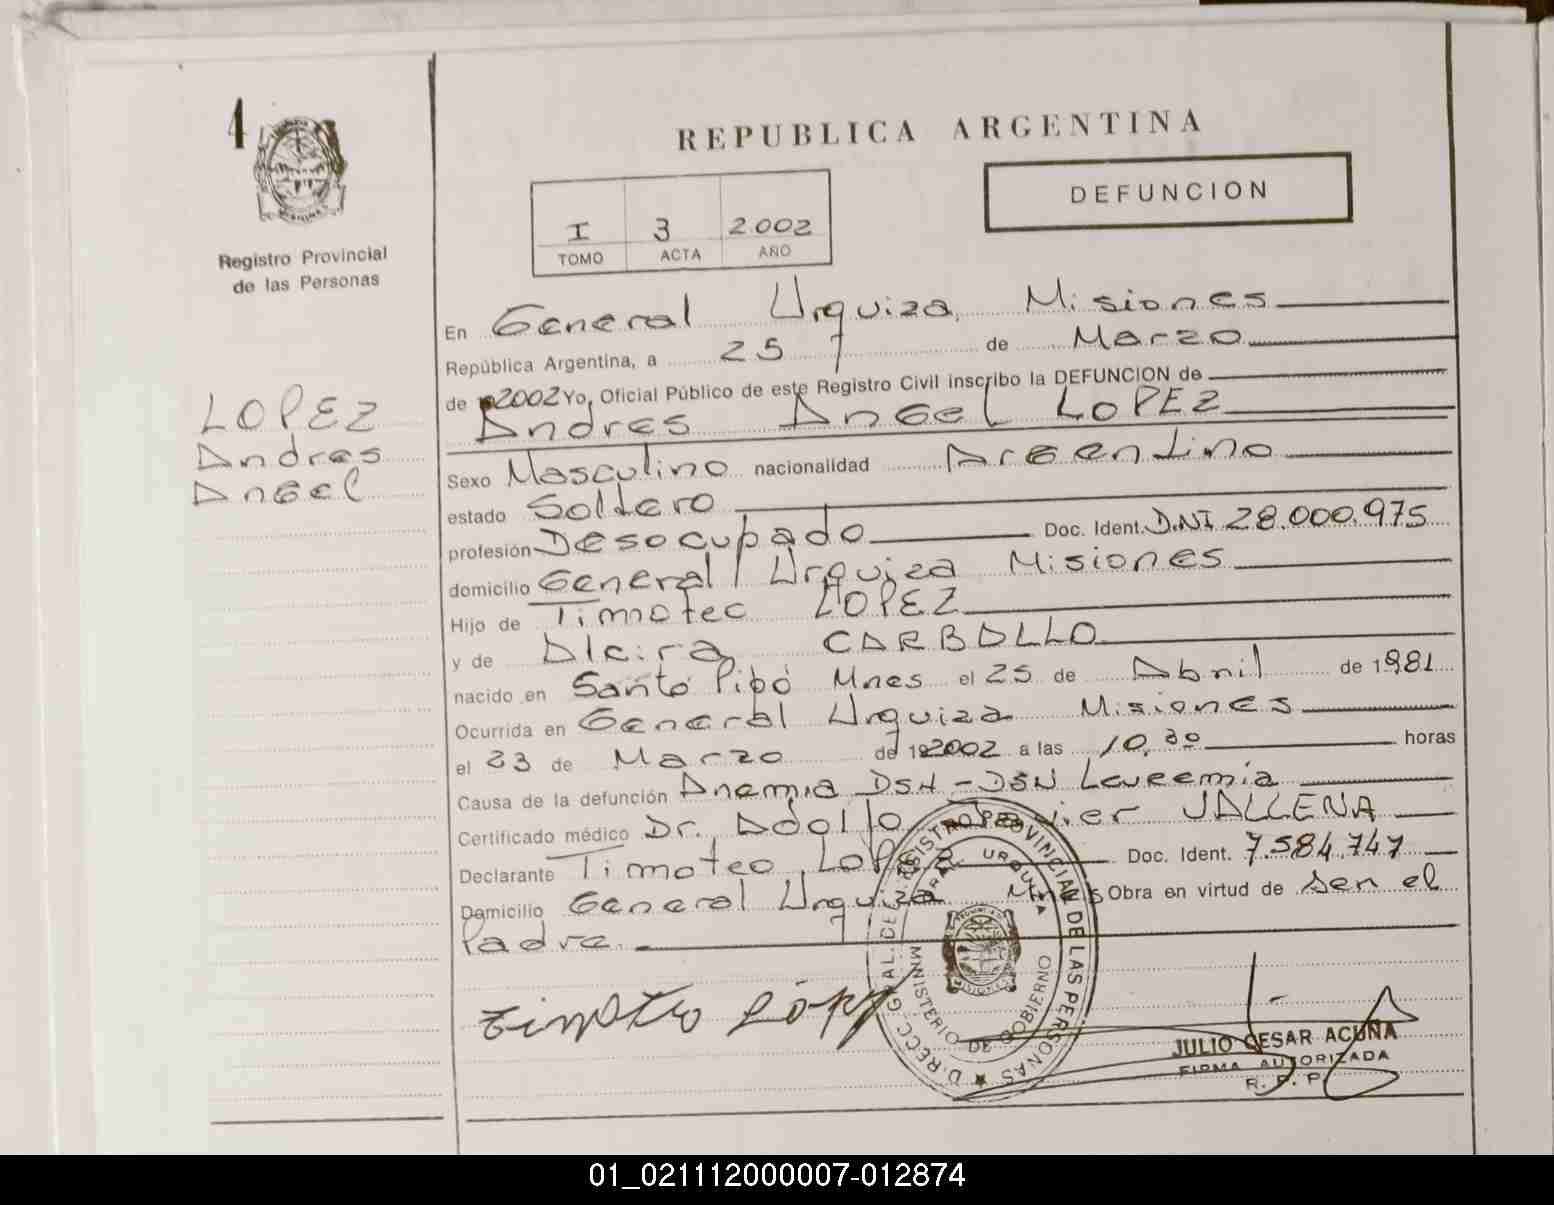 4
Registro Provincial
de las Personas
LOPEZ
Andres
Angel
REPUBLICA ARGENTINA
DEFUNCION
I 3 2.002
TOMO ACTA AÑO
En General Urquiza, Misiones
República Argentina, a 25 de Marzo
de 2002 Yo, Oficial Público de este Registro Civil inscribo la DEFUNCION de
Andres Angel LOPEZ
Sexo Masculino nacionalidad Argentino
estado Soltero
profesión Desocupado Doc. Ident. D.NI 28.000.975
domicilio General Urquiza Misiones
Hijo de Timoteo LOPEZ
y de Alcira CARBALLO
nacido en Santo Pipó Mnes el 25 de Abril de 1981
Ocurrida en General Urquiza Misiones
el 23 de Marzo de 2002 a las 10,30 horas
Causa de la defunción Anemia DSH - DSN Leucemia
Certificado médico Dr. Adolfo Javier VALLENA
Declarante Timoteo Lopez Doc. Ident. 7.584.747
Domicilio General Urquiza Mnes Obra en virtud de ser el
Padre.
Timoteo López
DIRECC. GRAL. DEL REGISTRO PROVINCIAL DE LAS PERSONAS
GRAL. URQUIZA
MINISTERIO DE GOBIERNO
MISIONES
JULIO CESAR ACUÑA
FIRMA AUTORIZADA
R. P. P.
01_021112000007-012874